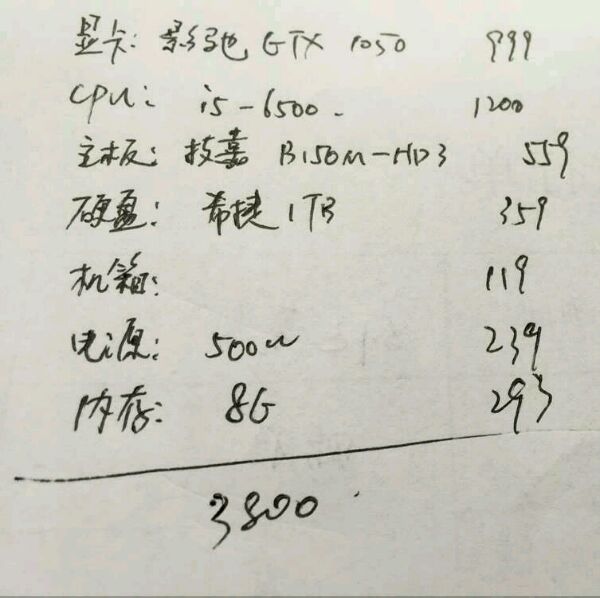 显卡: 影驰 GTX 1050 999
CPU: i5-6500. 1200
主板: 技嘉 B150M-HD3 559
硬盘: 希捷 1TB 359
机箱: 119
电源: 500W 239
内存: 8G 293
3800